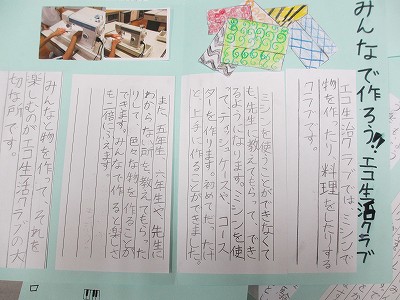 みんなで作ろう!!エコ生活クラブ
エコ生活クラブでは、ミシンで
物を作ったり、料理をしたりする
クラブです。
ミシンを使うことができなくて
も、先生に教えてもらって、でき
るようになります。ミシンを使
って、ティッシュケースや、コース
ターを作ります。初めてだったけ
ど、上手に作ることができました。
また、五年生、六年生や、先生に
わからない所を教えてもらった
りして、色々な物を作ることが
できます。みんなで作ると楽しさ
も二倍にふえます。
みんなで物を作って、それを
楽しむのがエコ生活クラブの大
切な所です。